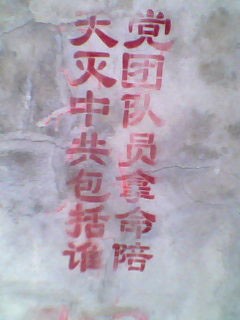 天灭中共包括谁
党团队员拿命陪